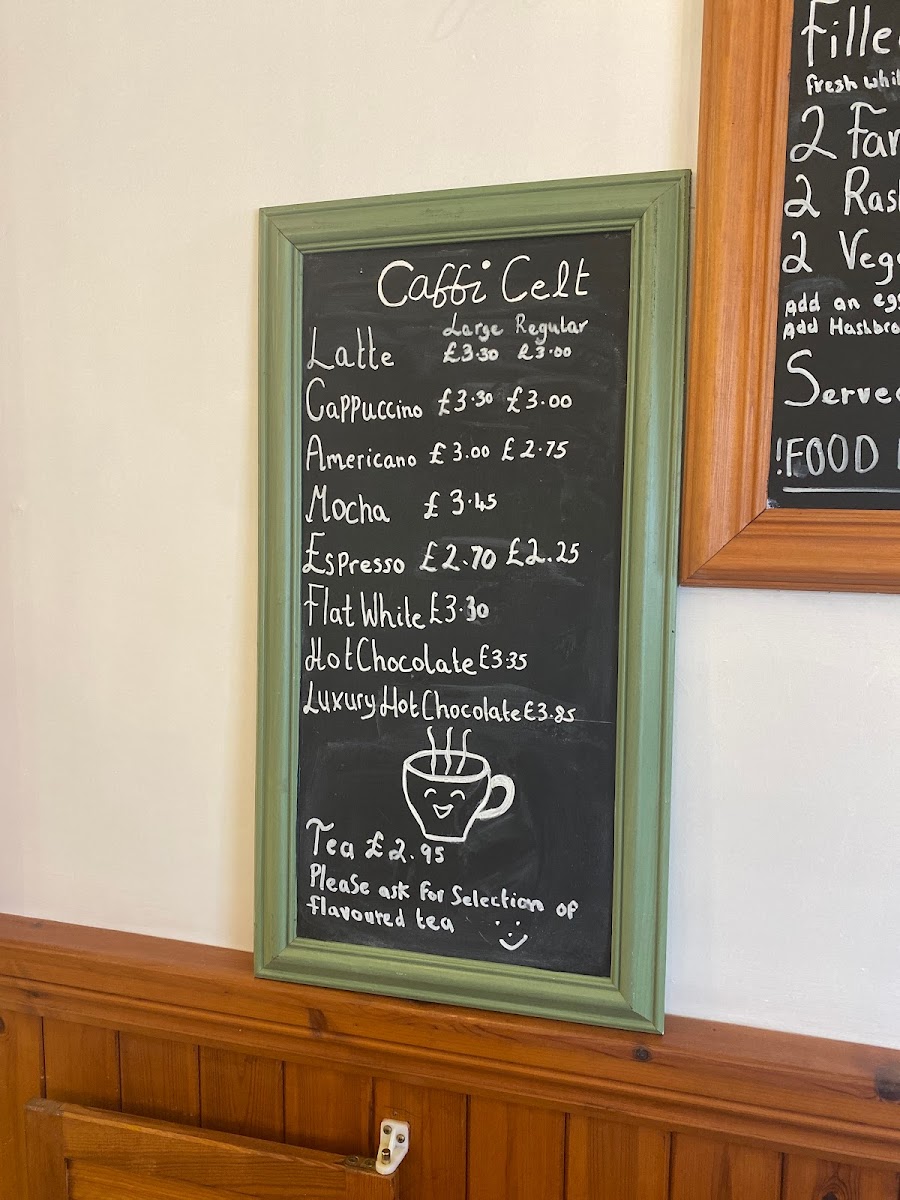 Caffi Celt
Large Regular
Latte £3.30 £3.00
Cappuccino £3.30 £3.00
Americano £3.00 £2.75
Mocha £3.45
Espresso £2.70 £2.25
Flat White £3.30
Hot Chocolate £3.35
Luxury Hot Chocolate £3.85
Tea £2.95
Please ask for Selection of
flavoured tea
Fille
fresh whi
2 Far
2 Ras
2 Veg
Add an egg
Add Hashbro
Serve
!FOOD